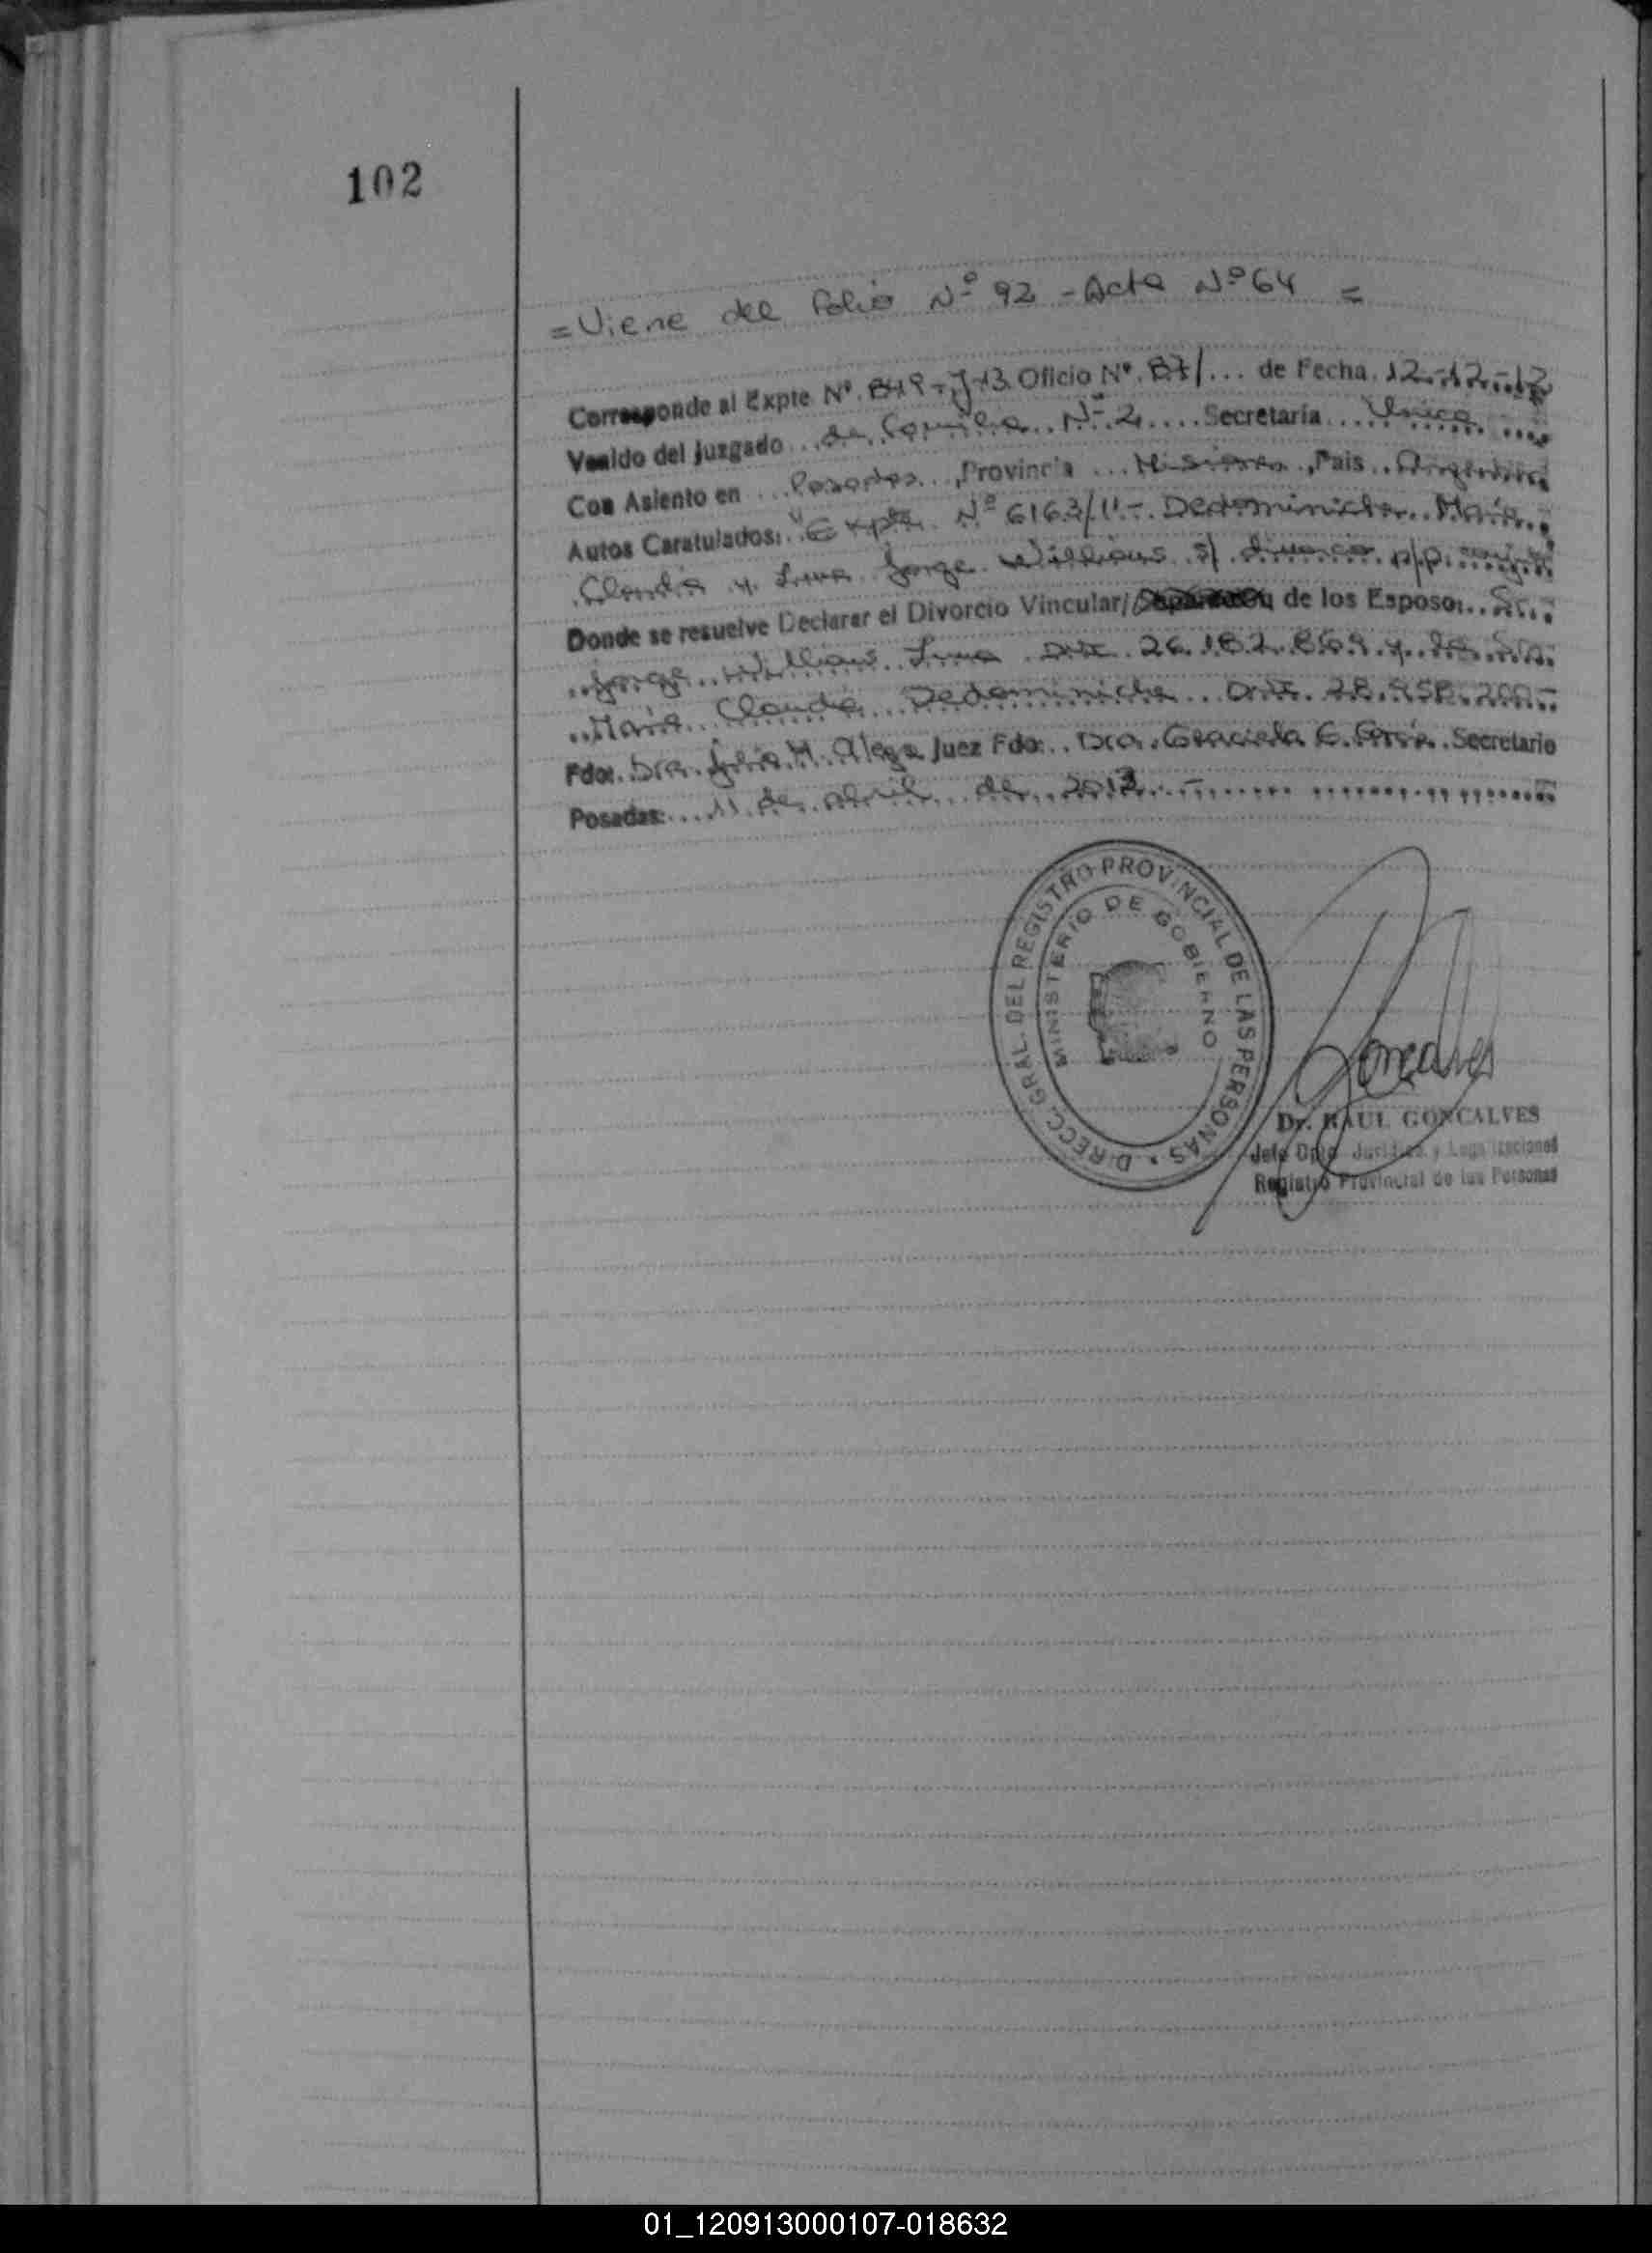 102
= Viene del folio Nº 92 - Acta Nº 64 =
Corresponde al Expte Nº. 849-J-13 Oficio Nº. 87/... de Fecha. 12-12-12
Venido del Juzgado ... de Familia Nº 2 .... Secretaría ... Unica ....
Con Asiento en ... Posadas ..., Provincia ... Misiones ., Pais .. Argentina
Autos Caratulados: "Expte. Nº 6163/11.- Dedominichi .. María..
Claudia y Luna Jorge Willians s/ divorcio p/p.
Donde se resuelve Declarar el Divorcio Vincular/ de los Esposo: .. Sr...
..Jorge.. Willians Luna DNI. 26.182.869 y. la Sra.
..María.. Claudia Dedominichi .. DNI. 28.958.200.-
Fdo: . Dra. Julia M. Alega Juez Fdo: .. Dra. Graciela E. . Secretario
Posadas: .... 11 de abril de 2013 .-
DIRECC. GRAL. DEL REGISTRO PROVINCIAL DE LAS PERSONAS
MINISTERIO DE GOBIERNO
Goncalves
Dr. RAUL GONCALVES
Jefe Dpto. Jurídico y Legalizaciones
Registro Provincial de las Personas
01_120913000107-018632